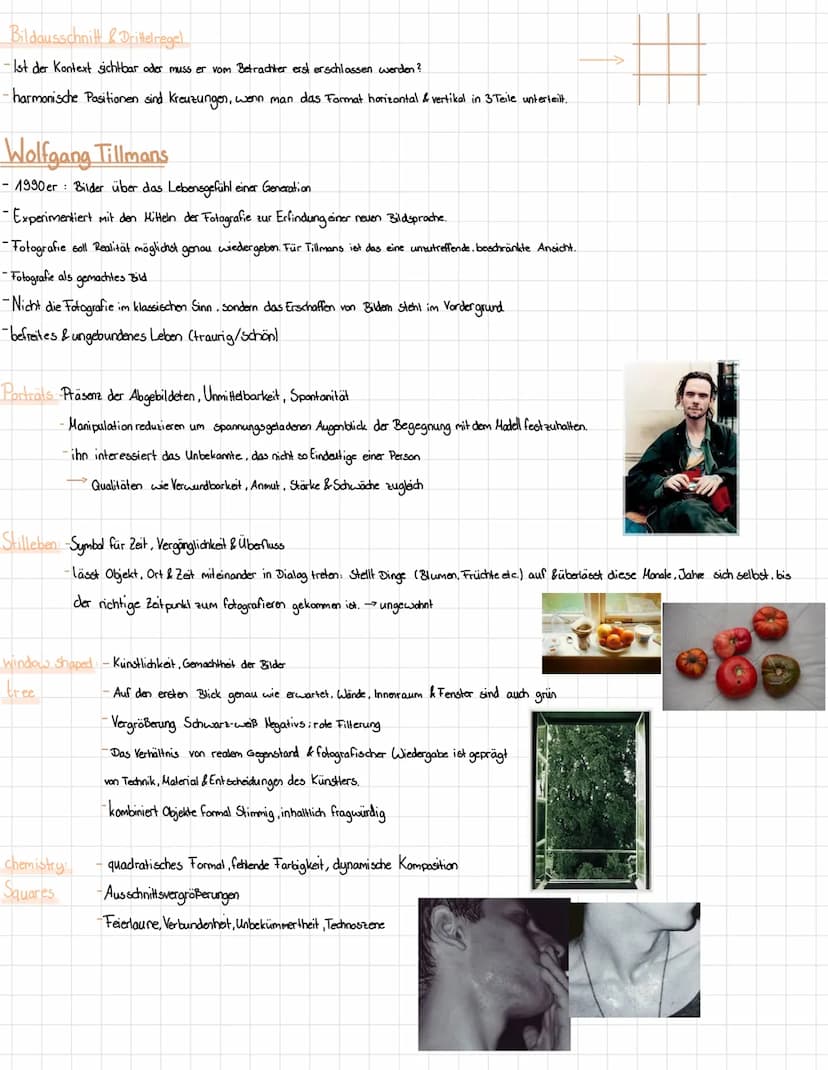 Bildausschnitt & Drittelregel
- Ist der Kontext sichtbar oder muss er vom Betrachter erst erschlossen werden?
- harmonische Positionen sind Kreuzungen, wenn man das Format horizontal & vertikal in 3 Teile unterteilt.
Wolfgang Tillmans
- 1990er : Bilder über das Lebensgefühl einer Generation
- Experimentiert mit den Mitteln der Fotografie zur Erfindung einer neuen Bildsprache.
- Fotografie soll Realität möglichst genau wiedergeben. Für Tillmans ist das eine unzutreffende, beschränkte Ansicht.
- Fotografie als gemachtes Bild
- Nicht die Fotografie im klassischen Sinn, sondern das Erschaffen von Bildern steht im Vordergrund
- befreites & ungebundenes Leben (traurig/schön)
Porträts - Präsenz der Abgebildeten, Unmittelbarkeit, Spontanität
- Manipulation reduzieren um spannungsgeladenen Augenblick der Begegnung mit dem Modell festzuhalten.
- ihn interessiert das Unbekannte, das nicht so Eindeutige einer Person
→ Qualitäten wie Verwundbarkeit, Anmut, Stärke & Schwäche zugleich
Stilleben: - Symbol für Zeit, Vergänglichkeit & Überfluss
- lässt Objekt, Ort & Zeit miteinander in Dialog treten: Stellt Dinge (Blumen, Früchte etc.) auf & überlässt diese Monate, Jahre sich selbst, bis
der richtige Zeitpunkt zum fotografieren gekommen ist. → ungewohnt
window shaped - Künstlichkeit, Gemachtheit der Bilder
tree - Auf den ersten Blick genau wie erwartet, Wände, Innenraum & Fenster sind auch grün
- Vergrößerung Schwarz-weiß Negativs ; rote Filterung
- Das Verhältnis von realem Gegenstand & fotografischer Wiedergabe ist geprägt
von Technik, Material & Entscheidungen des Künstlers.
- kombiniert Objekte formal Stimmig, inhaltlich fragwürdig
chemistry: - quadratisches Format, fehlende Farbigkeit, dynamische Komposition
Squares - Ausschnittsvergrößerungen
- Feierlaune, Verbundenheit, Unbekümmertheit, Technoszene